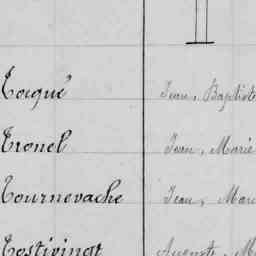 Tocqué Jean, Baptiste
Tronel Jean, Marie
Tournevache Jean, Marc
Tostivingt Auguste, M